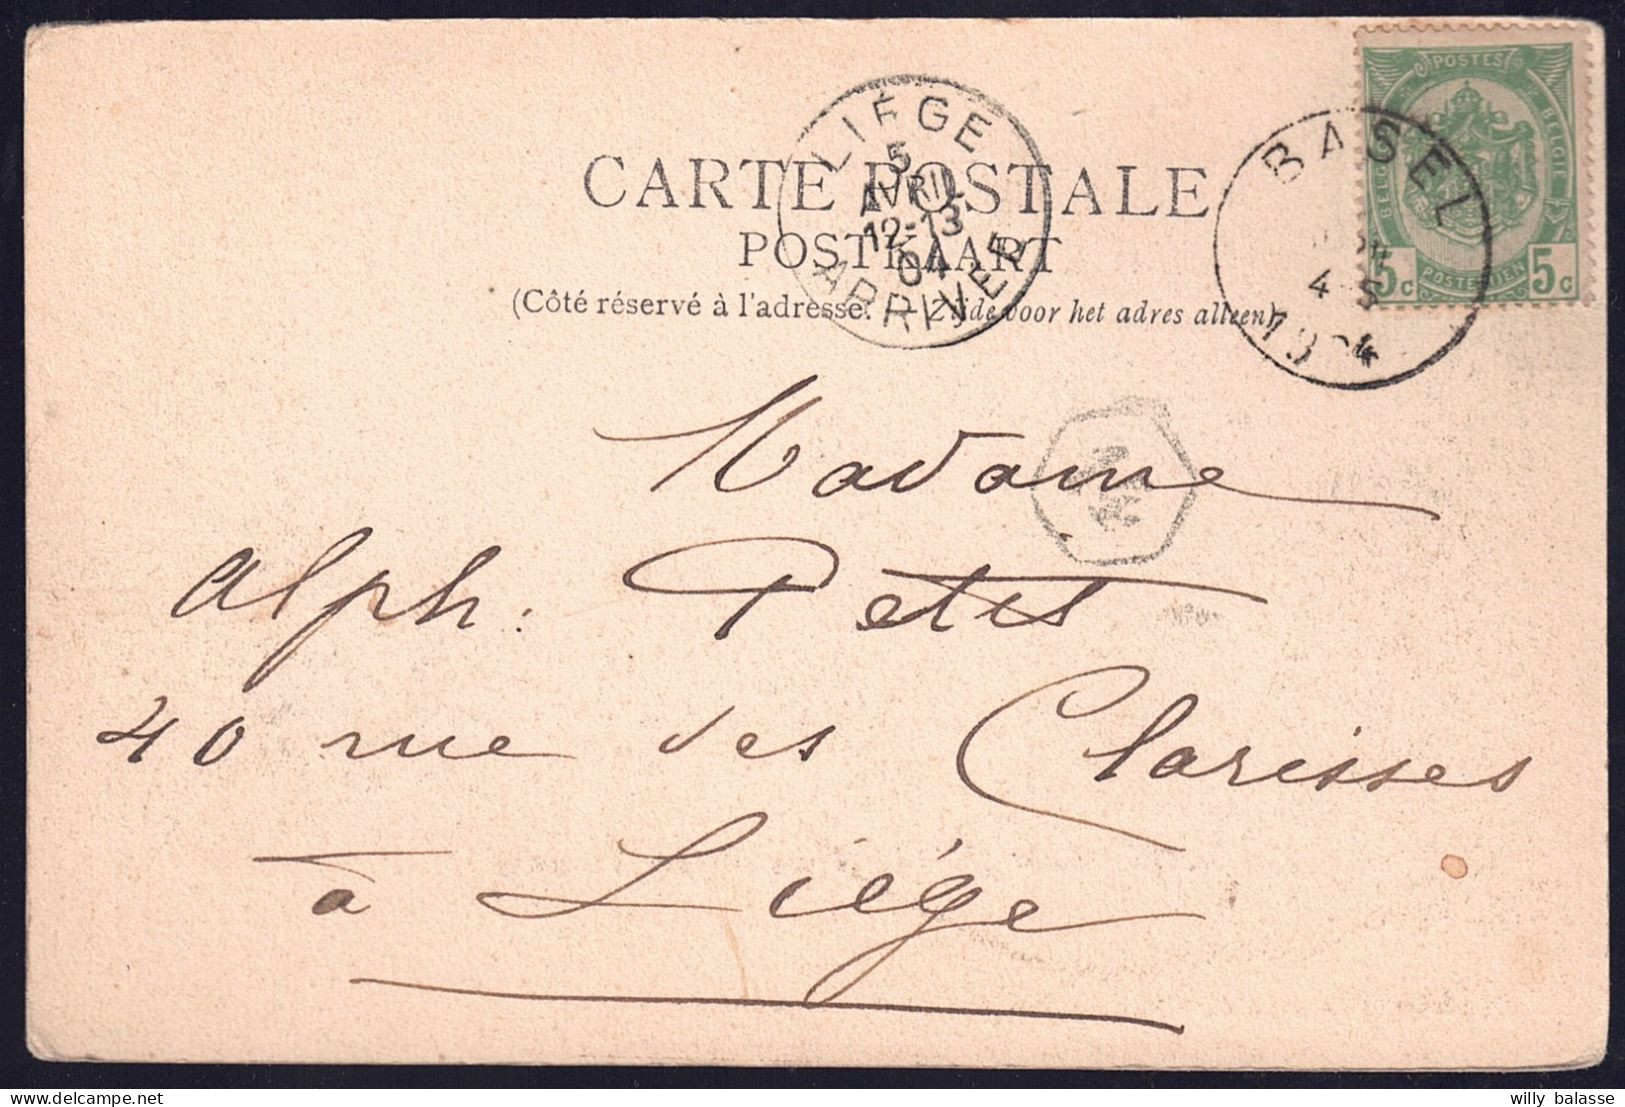 POSTES
BELGIQUE BELGIE
POSTERIJEN
5c 5c
BASEL
4-5
LIÉGE
5
AVRIL
12-13
04
ARRIVEE
CARTE POSTALE
POSTKAART
(Côté réservé à l'adresse. — Zijde voor het adres alleen)
Madame
Alph. Petit
40 rue des Clarisses
à Liége
willy balasse